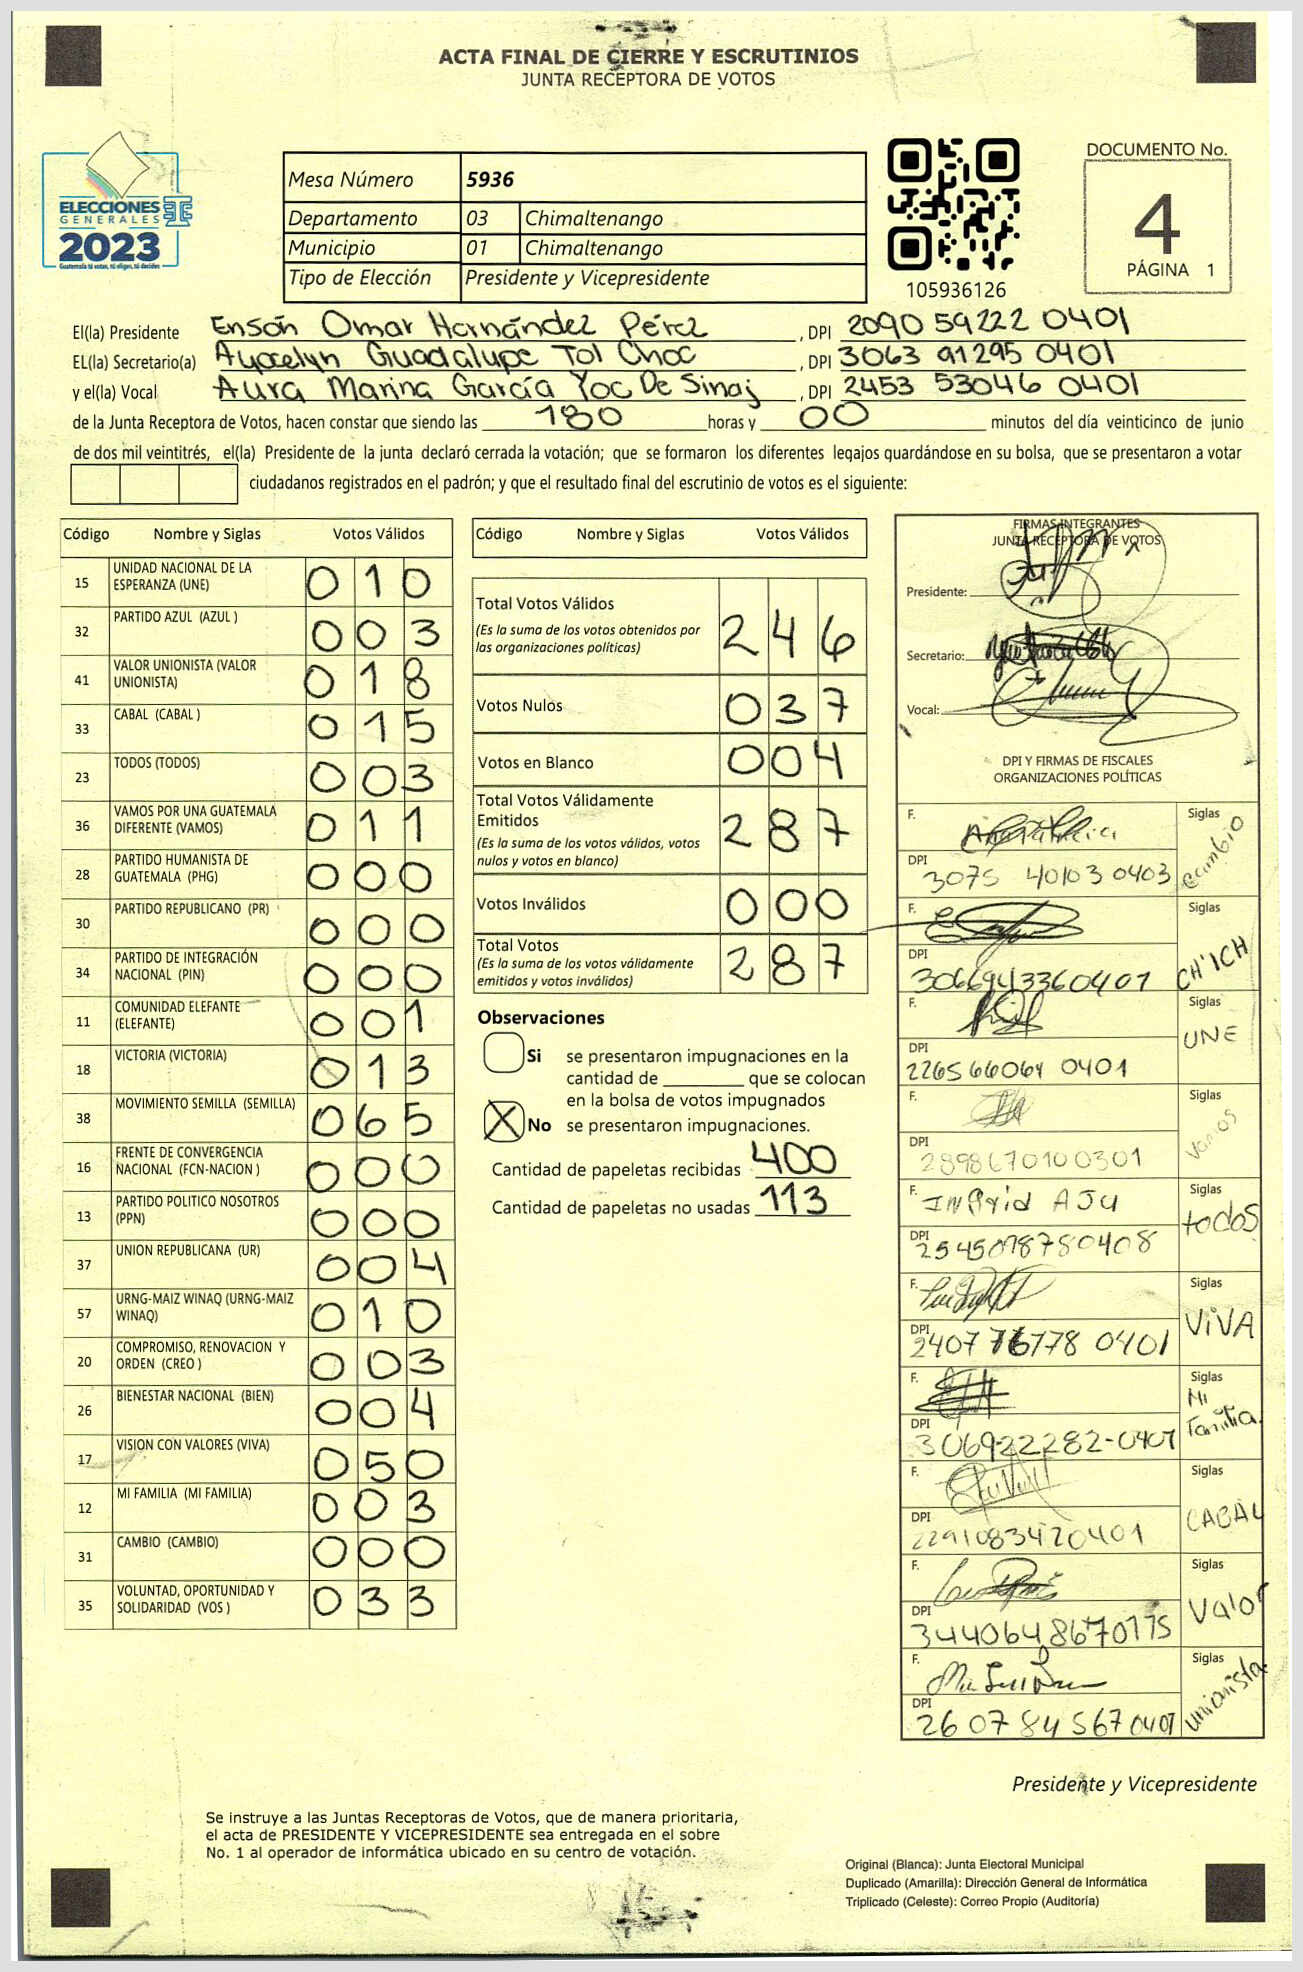 ACTA FINAL DE CIERRE Y ESCRUTINIOS
JUNTA RECEPTORA DE VOTOS
ELECCIONES
GENERALES
2023
Guatemala tú votas, tú eliges, tú decides
Mesa Número 5936
Departamento 03 Chimaltenango
Municipio 01 Chimaltenango
Tipo de Elección Presidente y Vicepresidente
105936126
DOCUMENTO No.
4
PÁGINA 1
El(la) Presidente Ensón Omar Hernández Pérez, DPI 2090 59222 0401
EL(la) Secretario(a) Ayocelyn Guadalupe Tol Choc, DPI 3063 91295 0401
y el(la) Vocal Aura Marina García Yoc De Sinaj, DPI 2453 53046 0401
de la Junta Receptora de Votos, hacen constar que siendo las 180 horas y 00 minutos del día veinticinco de junio
de dos mil veintitrés, el(la) Presidente de la junta declaró cerrada la votación; que se formaron los diferentes legajos guardándose en su bolsa, que se presentaron a votar
ciudadanos registrados en el padrón; y que el resultado final del escrutinio de votos es el siguiente:
Código Nombre y Siglas Votos Válidos
15 UNIDAD NACIONAL DE LA ESPERANZA (UNE) 010
32 PARTIDO AZUL (AZUL ) 003
41 VALOR UNIONISTA (VALOR UNIONISTA) 018
33 CABAL (CABAL ) 015
23 TODOS (TODOS) 003
36 VAMOS POR UNA GUATEMALA DIFERENTE (VAMOS) 011
28 PARTIDO HUMANISTA DE GUATEMALA (PHG) 000
30 PARTIDO REPUBLICANO (PR) 000
34 PARTIDO DE INTEGRACIÓN NACIONAL (PIN) 000
11 COMUNIDAD ELEFANTE (ELEFANTE) 001
18 VICTORIA (VICTORIA) 013
38 MOVIMIENTO SEMILLA (SEMILLA) 065
16 FRENTE DE CONVERGENCIA NACIONAL (FCN-NACION ) 000
13 PARTIDO POLITICO NOSOTROS (PPN) 000
37 UNION REPUBLICANA (UR) 004
57 URNG-MAIZ WINAQ (URNG-MAIZ WINAQ) 010
20 COMPROMISO, RENOVACION Y ORDEN (CREO ) 003
26 BIENESTAR NACIONAL (BIEN) 004
17 VISION CON VALORES (VIVA) 050
12 MI FAMILIA (MI FAMILIA) 003
31 CAMBIO (CAMBIO) 000
35 VOLUNTAD, OPORTUNIDAD Y SOLIDARIDAD (VOS ) 033
Código Nombre y Siglas Votos Válidos
Total Votos Válidos 246
(Es la suma de los votos obtenidos por
las organizaciones políticas)
Votos Nulos 037
Votos en Blanco 004
Total Votos Válidamente
Emitidos 287
(Es la suma de los votos válidos, votos
nulos y votos en blanco)
Votos Inválidos 000
Total Votos 287
(Es la suma de los votos válidamente
emitidos y votos inválidos)
Observaciones
Si se presentaron impugnaciones en la
cantidad de ________ que se colocan
en la bolsa de votos impugnados
X No se presentaron impugnaciones.
Cantidad de papeletas recibidas 400
Cantidad de papeletas no usadas 113
FIRMAS INTEGRANTES
JUNTA RECEPTORA DE VOTOS
Presidente:
Secretario:
Vocal:
DPI Y FIRMAS DE FISCALES
ORGANIZACIONES POLÍTICAS
F. Siglas cambio
DPI 3075 40103 0403
F. Siglas CH'ICH
DPI 3066943360401
F. Siglas UNE
DPI 226566064 0401
F. Siglas vamos
DPI 2898670100301
F. Ingrid AJU Siglas todos
DPI 2545098780408
F. Siglas VIVA
DPI 2407 76778 0401
F. Siglas Mi Familia
DPI 306922282-0401
F. Siglas CABAL
DPI 2291083420401
F. Siglas Valor
DPI 3440648670115
F. Siglas unionista
DPI 26 07 84 567 0401
Presidente y Vicepresidente
Se instruye a las Juntas Receptoras de Votos, que de manera prioritaria,
el acta de PRESIDENTE Y VICEPRESIDENTE sea entregada en el sobre
No. 1 al operador de informática ubicado en su centro de votación.
Original (Blanca): Junta Electoral Municipal
Duplicado (Amarilla): Dirección General de Informática
Triplicado (Celeste): Correo Propio (Auditoría)